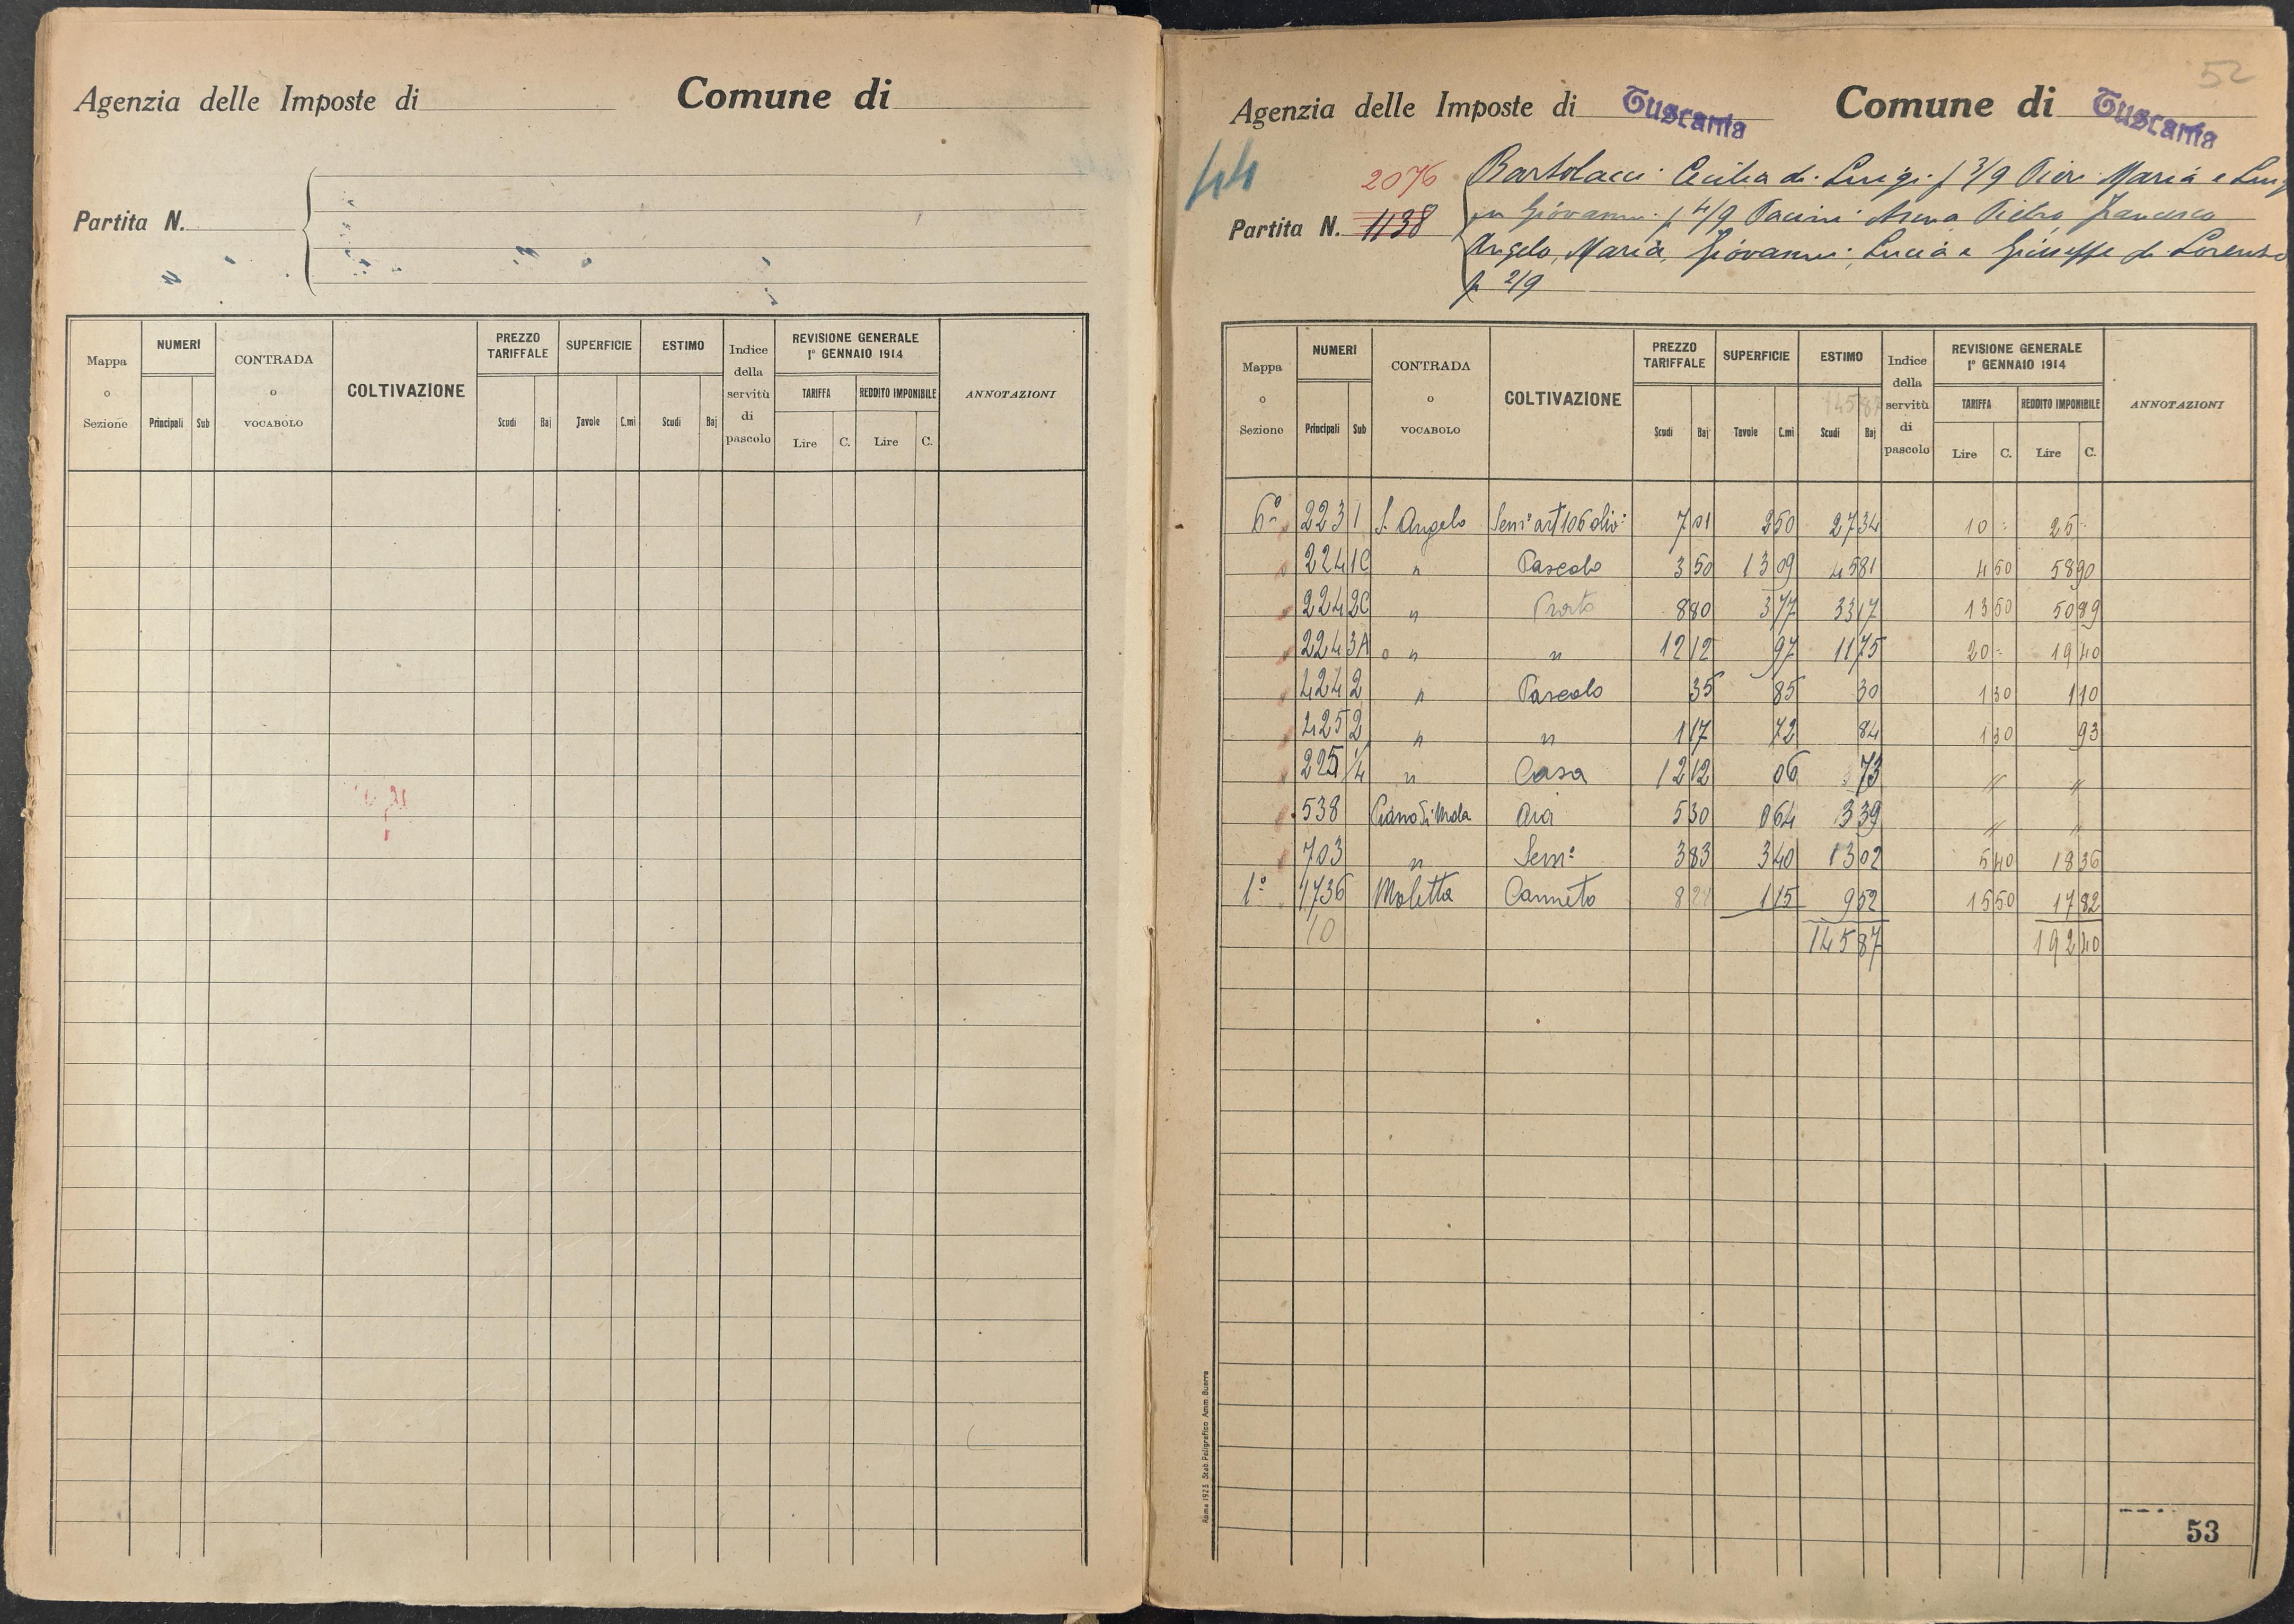 Agenzia delle Imposte di Comune di
Partita N.
Mappa o Sezione NUMERI Principali Sub CONTRADA o VOCABOLO COLTIVAZIONE PREZZO TARIFFALE Scudi Baj SUPERFICIE Tavole C.mi ESTIMO Scudi Baj Indice della servitù di pascolo REVISIONE GENERALE 1° GENNAIO 1914 TARIFFA Lire C. REDDITO IMPONIBILE Lire C. ANNOTAZIONI
52
Agenzia delle Imposte di Tuscania Comune di Tuscania
44
2076
Partita N. 1138
Bartolacci Cecilia di Luigi p 3/9 Pieri Maria e Luig
in Giovanni p 4/9 Pacini Pietro Francesco
Angelo, Maria, Giovanni, Lucia e Giuseppe di Lorenzo
p 2/9
Mappa o Sezione NUMERI Principali Sub CONTRADA o VOCABOLO COLTIVAZIONE PREZZO TARIFFALE Scudi Baj SUPERFICIE Tavole C.mi ESTIMO Scudi Baj Indice della servitù di pascolo REVISIONE GENERALE 1° GENNAIO 1914 TARIFFA Lire C. REDDITO IMPONIBILE Lire C. ANNOTAZIONI
14587
6° 223 1 S. Angelo Sem° art 106 oliv: 7 01 2 50 27 34 10 = 25 =
224 1C " Pascolo 3 50 13 09 45 81 4 50 58 90
224 2C " Prato 8 80 3 77 33 17 13 50 50 89
224 3A o " " 12 12 97 11 75 20 = 19 40
424 2 " Pascolo 35 85 30 1 30 1 10
425 2 " " 1 17 72 84 1 30 93
225 1/4 " Casa 12 12 06 73 " "
538 Piano di Mola Aia 5 30 0 64 3 39 " "
703 " Sem° 3 83 3 40 13 02 5 40 18 36
1° 1736 Moletta Canneto 8 28 1 15 9 52 15 50 17 82
10 145 87 192 40
Roma 1923 Stab. Poligrafico Amm. Guerra
53